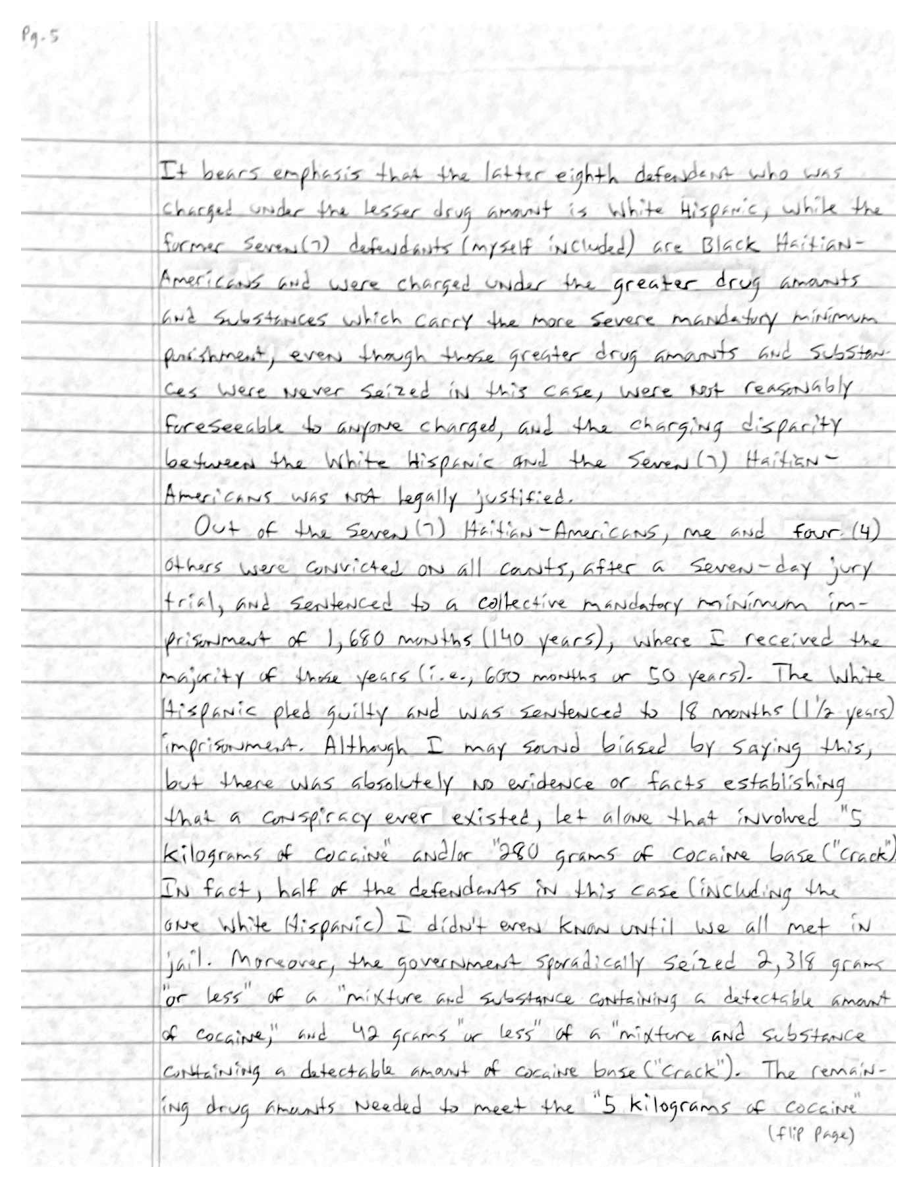 Pg. 5
It bears emphasis that the latter eighth defendant who was
charged under the lesser drug amount is White Hispanic, while the
former seven (7) defendants (myself included) are Black Haitian-
Americans and were charged under the greater drug amounts
and substances which carry the more severe mandatory minimum
punishment, even though those greater drug amounts and substan-
ces were never seized in this case, were not reasonably
foreseeable to anyone charged, and the charging disparity
between the White Hispanic and the seven (7) Haitian-
Americans was not legally justified.
Out of the seven (7) Haitian-Americans, me and four (4)
others were convicted on all counts, after a seven-day jury
trial, and sentenced to a collective mandatory minimum im-
prisonment of 1,680 months (140 years), where I received the
majority of those years (i.e., 600 months or 50 years). The White
Hispanic pled guilty and was sentenced to 18 months (1 1/2 years)
imprisonment. Although I may sound biased by saying this,
but there was absolutely no evidence or facts establishing
that a conspiracy ever existed, let alone that involved "5
kilograms of cocaine" and/or "280 grams of cocaine base ("crack")
In fact, half of the defendants in this case (including the
one White Hispanic) I didn't even know until we all met in
jail. Moreover, the government sporadically seized 2,318 grams
"or less" of a "mixture and substance containing a detectable amount
of cocaine," and 42 grams "or less" of a "mixture and substance
containing a detectable amount of cocaine base ("crack"). The remain-
ing drug amounts needed to meet the "5 kilograms of cocaine"
(flip page)